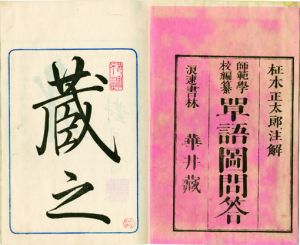 柾木正太郎注解
師範學
校編纂
單語圖問答
浪速書林
華井藏
藏之